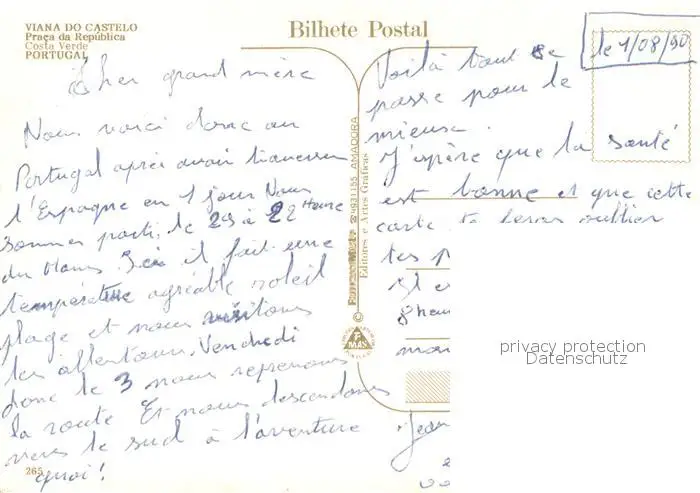 VIANA DO CASTELO
Praça da República
Costa Verde
PORTUGAL
Bilhete Postal
le 1/08/90
Cher grand mère
Nous voici donc au
Portugal après avoir traversé
l'Espagne en 1 jour Nous
sommes parti le 29 à 22 Heure
du Mans. Ici il fait une
température agréable soleil
plage et nous visitons
les allentours. Vendredi
donc le 3 nous reprenons
la route Et nous descendons
vers le sud à l'aventure
quoi!
Voilà tout se
passe pour le
mieux.
J'espère que la santé
est bonne et que cette
carte te feras oublier
tes
Jean
AMADORA
Editores e Artes Gráficas
265
privacy protection
Datenschutz